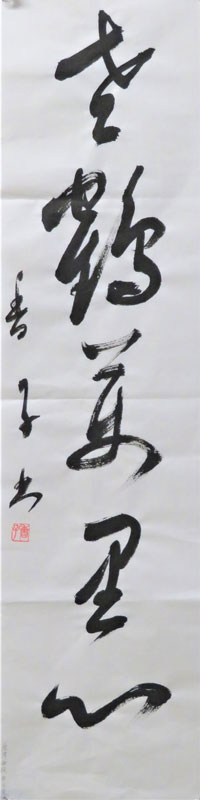 老鶴萬里心
香子書